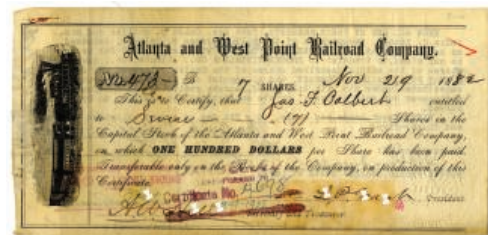 Atlanta and West Point Railroad Company.
No. 473 7 SHARES. Nov 29 188
This is to Certify, that Jas. F. Colbert entitled
to Seven (7) Shares in the
Capital Stock of the Atlanta and West Point Railroad Company,
on which ONE HUNDRED DOLLARS per Share has been paid.
Transferable only on the Books of the Company, on production of this
Certificate.
Certificate No.
President
Secretary and Treasurer